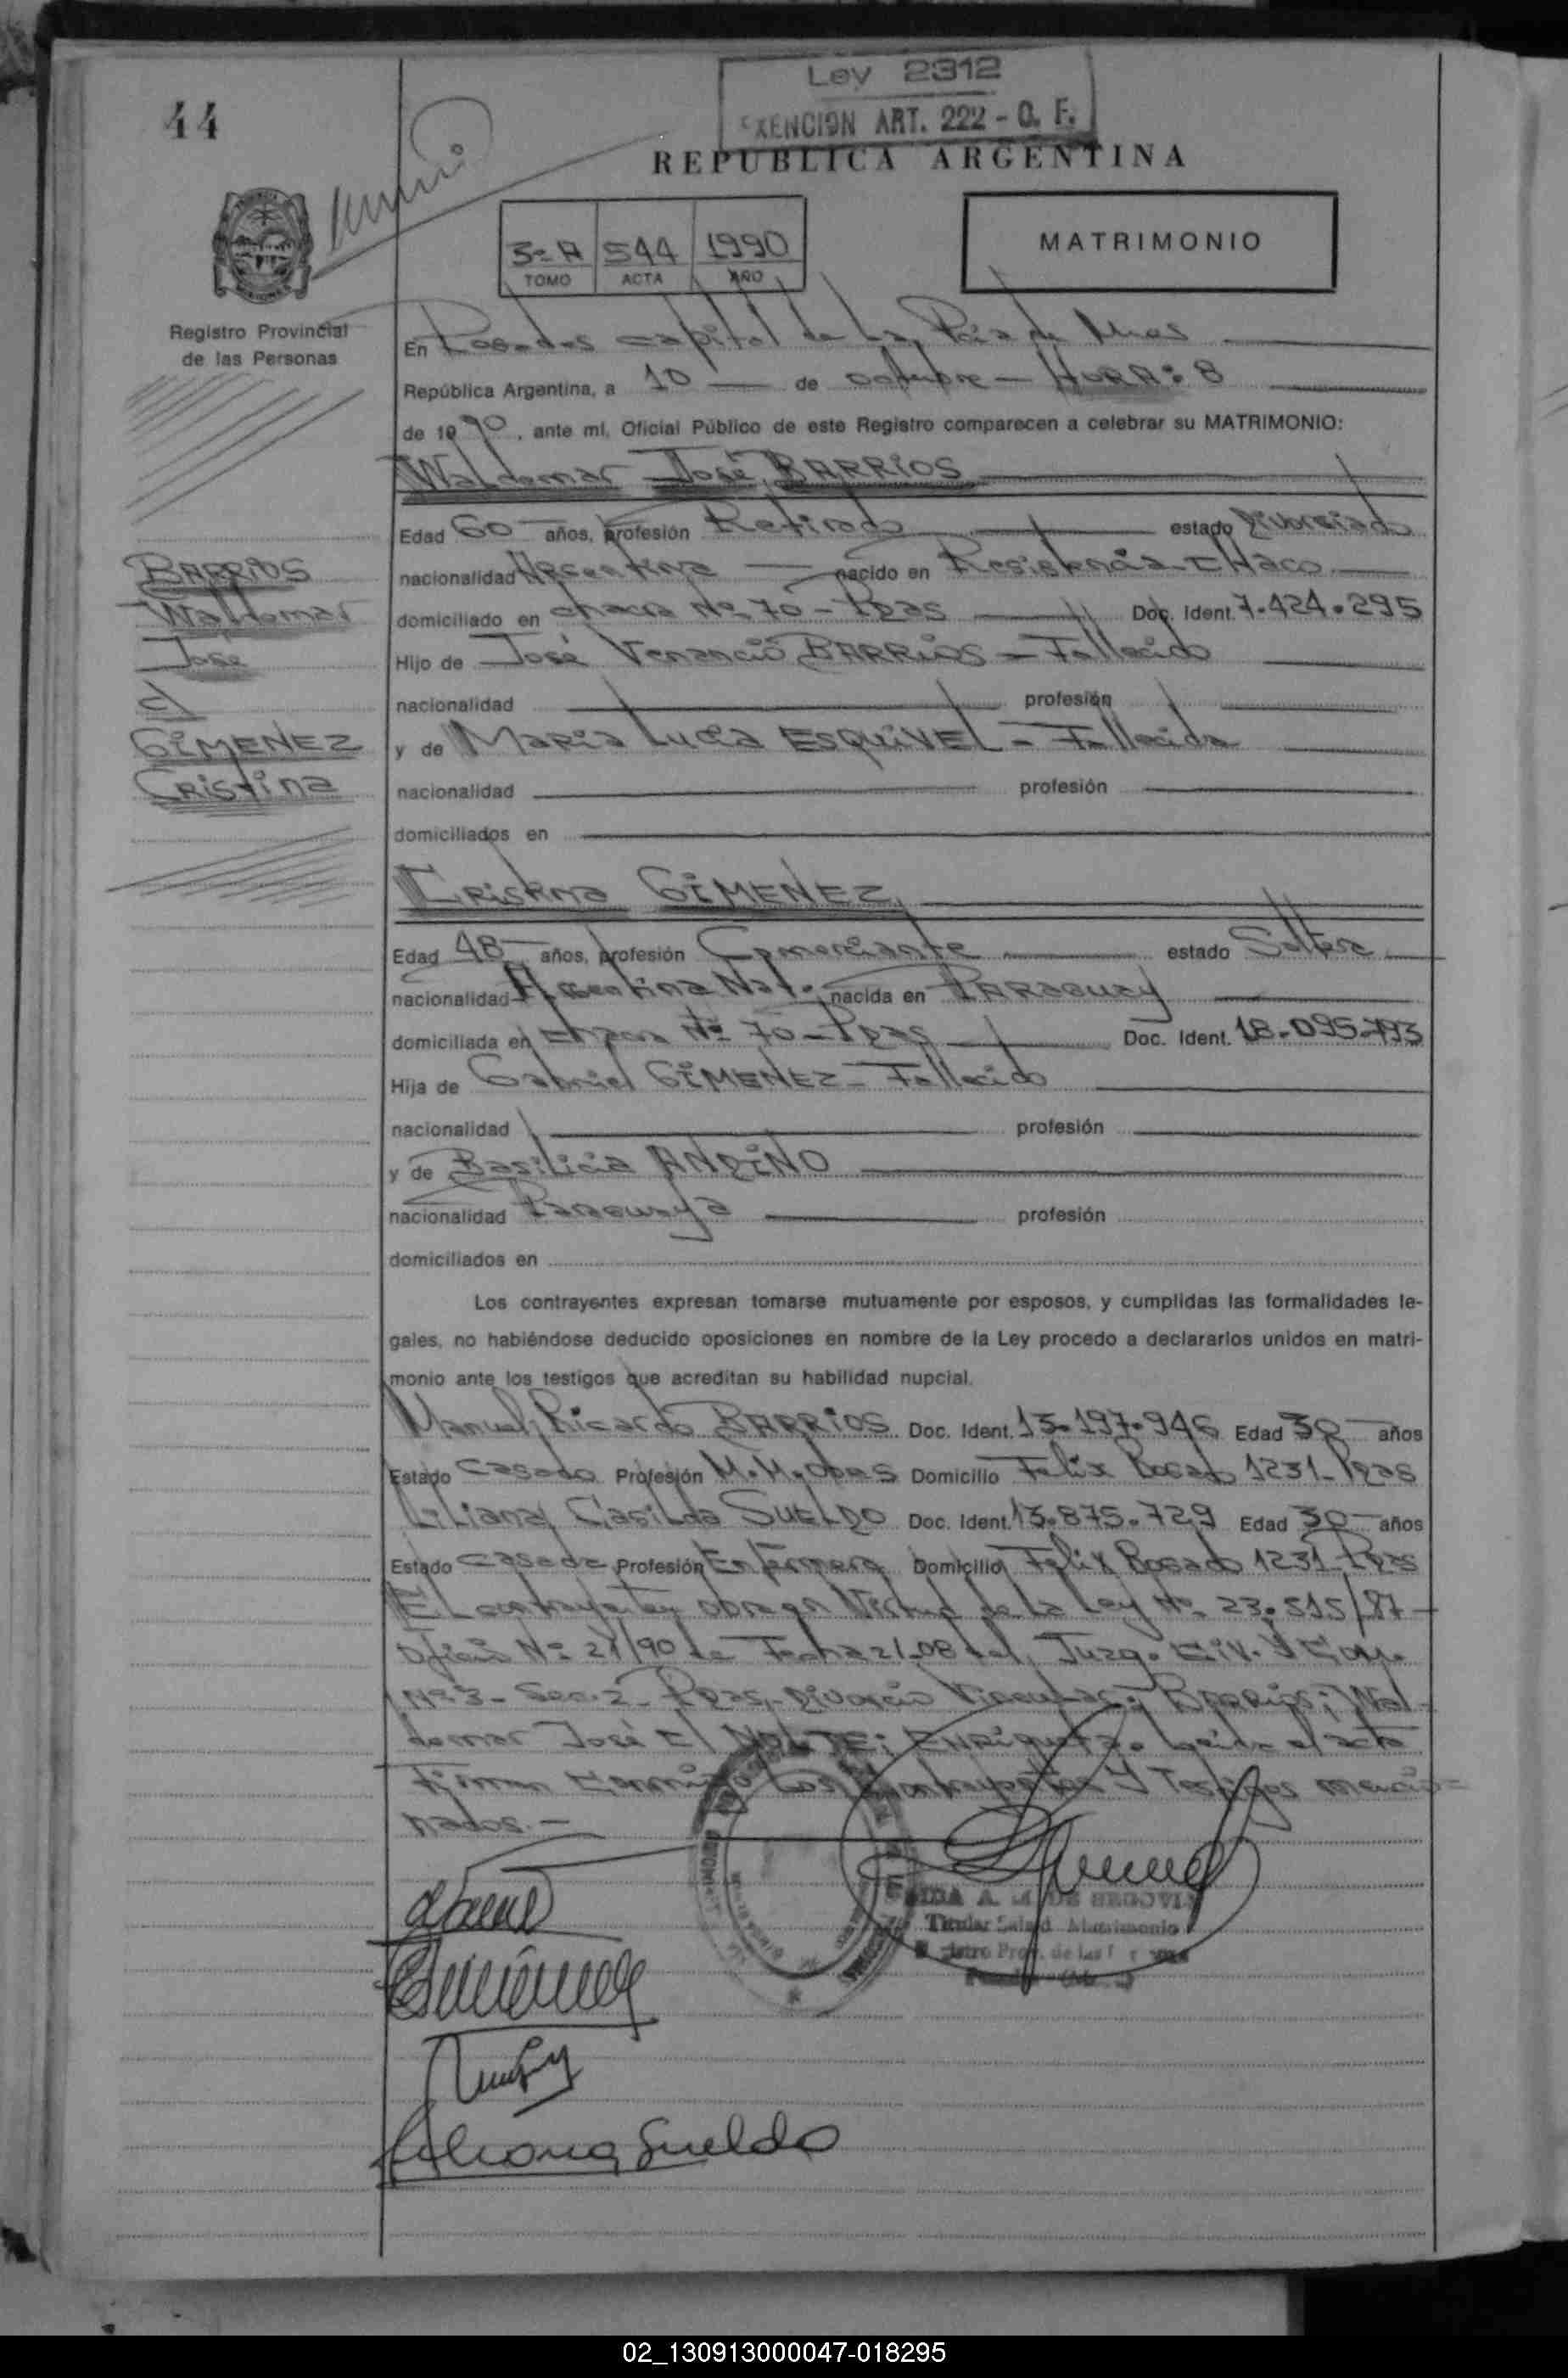 44
Ley 2312
EXENCION ART. 222 - O. F.
REPUBLICA ARGENTINA
3º A 544 1990
TOMO ACTA AÑO
MATRIMONIO
Registro Provincial
de las Personas
En Posadas capital de la Pcia de Mnes
República Argentina, a 10 de octubre - HORA: 8
de 1990, ante mí, Oficial Público de este Registro comparecen a celebrar su MATRIMONIO:
Waldemar José BARRIOS
Edad 60 años, profesión Retirado estado Divorciado
nacionalidad Argentina nacido en Resistencia - CHaco
domiciliado en chacra Nº 70 - Pdas Doc. Ident. 7.424.295
Hijo de José Venancio BARRIOS - Fallecido
nacionalidad profesión
y de María Lucia ESQUIVEL - Fallecida
nacionalidad profesión
domiciliados en
BARRIOS
Waldemar
José
c/
GIMENEZ
Cristina
Cristina GIMENEZ
Edad 48 años, profesión Comerciante estado Soltera
nacionalidad Argentina Nat. nacida en PARAGUAY
domiciliada en Chacra Nº 70 - Pdas Doc. Ident. 18.095.793
Hija de Gabriel GIMENEZ - Fallecido
nacionalidad profesión
y de Basilicia ANDINO
nacionalidad Paraguaya profesión
domiciliados en
Los contrayentes expresan tomarse mutuamente por esposos, y cumplidas las formalidades le-
gales, no habiéndose deducido oposiciones en nombre de la Ley procedo a declararlos unidos en matri-
monio ante los testigos que acreditan su habilidad nupcial.
Manuel Ricardo BARRIOS Doc. Ident. 13.197.946 Edad 30 años
Estado Casado Profesión Domicilio Felix Bogado 1231 - Pdas
Liliana Casilda SUELDO Doc. Ident. 13.875.729 Edad 30 años
Estado casada Profesión Enfermera Domicilio Felix Bogado 1231 - Pdas
El contrayente obra en Virtud de la Ley Nº 23.515/87 -
Oficio Nº 21/90 de Fecha 21-08 del Juzg. Civ. y Com.
Nº 3 - Sec. 2 - Pdas, Divorcio Vincular; Barrios; Wal-
demar José C/ ENRIQUETA. Leida el acta
Firman Conmigo Los Contrayentes y Testigos mencio-
nados.-
DE SEGOVIA
Titular Matrimonio
Liliana Sueldo
02_130913000047-018295